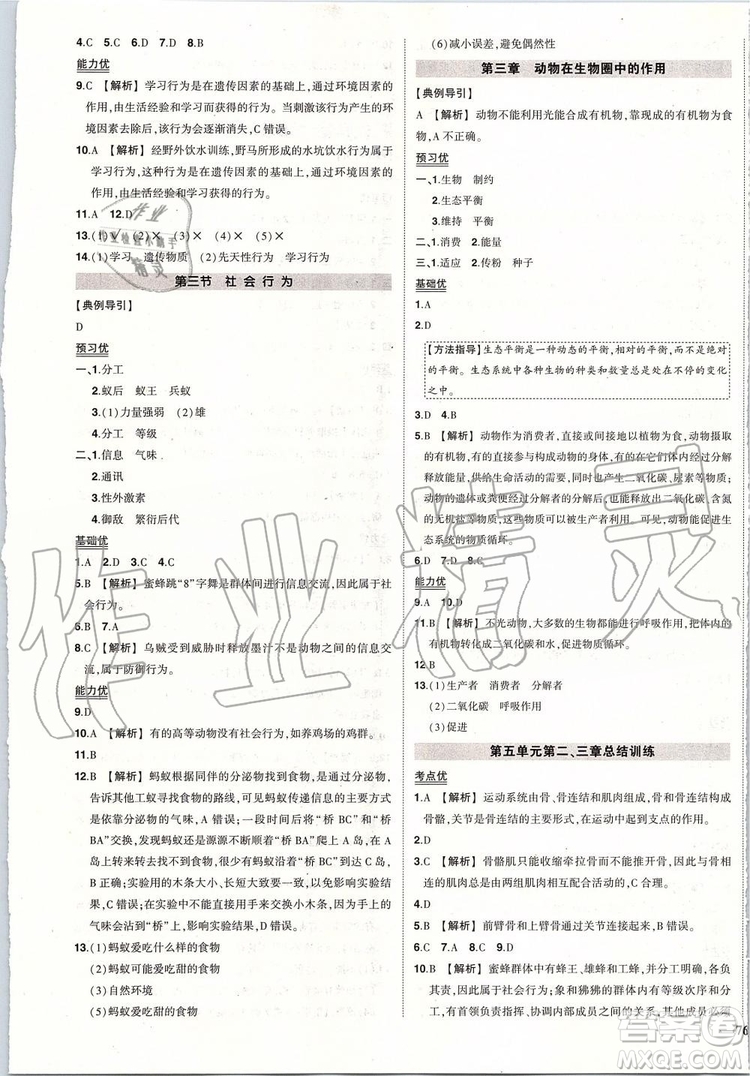 4.C 5.C 6.D 7.D 8.B
能力优
9.C 【解析】学习行为是在遗传因素的基础上,通过环境因素的
作用,由生活经验和学习而获得的行为。当刺激该行为产生的环
境因素去除后,该行为会逐渐消失,C 错误。
10.A 【解析】经野外饮水训练,野马所形成的水坑饮水行为属于
学习行为,这种行为是在遗传因素的基础上,通过环境因素的作
用,由生活经验和学习获得的行为。
11.A 12.D
13.(1)√ (2)× (3)× (4)× (5)×
14.(1)学习 遗传物质 (2)先天性行为 学习行为
第三节 社会行为
【典例导引】
D
预习优
一、1.分工
2.蚁后 蚁王 兵蚁
3.(1)力量强弱 (2)雄
4.分工 等级
二、1.信息 气味
2.通讯
3.性外激素
4.御敌 繁衍后代
基础优
1.A 2.D 3.C 4.C
5.B 【解析】蜜蜂跳“8”字舞是群体间进行信息交流,因此属于社
会行为。
6.B 7.A
8.C 【解析】乌贼受到威胁时释放墨汁不是动物之间的信息交
流,属于防御行为。
能力优
9.D
10.D 【解析】有的高等动物没有社会行为,如养鸡场的鸡群。
11.B
12.B 【解析】蚂蚁根据同伴的分泌物找到食物,并通过分泌物,
告诉其他工蚁寻找食物的路线,可见蚂蚁传递信息的方式是
依靠分泌物的气味,A 错误。一段时间后将“桥 BC”和“桥
BA”交换,发现蚂蚁还是源源不断地向“桥 BC”上爬,因此 A
岛上就没有食物了,可见 B 正确。蚂蚁有社会行为,C 错误。
BC、BA 去掉;实验用的木条大小、长短应该相同,防止木条上
气味沾到“桥”上,影响实验效果,D 错误。
13.(1)蚂蚁爱吃什么样的食物
(2)蚂蚁可能爱吃甜的食物
(3)自然环境
(5)蚂蚁爱吃甜的食物
(6)减小误差,避免偶然性
第三章 动物在生物圈中的作用
【典例导引】
A 【解析】动物不能利用光能合成有机物,靠现成的有机物为食
物,A 不正确。
预习优
一、1.生物 制约
2.生态平衡
3.维持 平衡
二、1.消费 2.能量
三、1.适应 2.传粉 种子
基础优
1.A
2.D
【方法指导】生态平衡是一种动态的平衡,相对的平衡,而不是绝对
的平衡。生态系统中各种生物的种类和数量总是处在不停的变化
之中。
3.D 4.B
5.B 【解析】动物作为消费者,直接或间接地以植物为食,动物摄取
的有机物,有一部分构成动物的身体,有一部分在它们体内经过分解
释放能量,供给生命活动的需要,同时也产生二氧化碳、尿素等物质,
动物的遗体或粪便经过分解者的分解,也能释放出二氧化碳、含氮
的无机盐等物质,这些物质可以被植物利用。可见,动物能促进生
态系统的物质循环。
6.D 7.D 8.C
能力优
9.A 10.D
11.B 【解析】不光动物,大多数的生物都能进行呼吸作用,把体内的
有机物转化成二氧化碳和水等物质,促进物质循环。
12.B
13.(1)生产者 消费者 分解者
(2)二氧化碳 呼吸作用
(3)促进
第五单元第二、三章总结训练
考点优
1.A 【解析】运动系统由骨、骨连结和肌肉组成,骨、骨连结构成
骨骼,关节是骨连结的主要形式,在运动中起到支点的作用。
2.D
3.C 【解析】骨骼肌只能收缩牵拉骨而不能推开骨,与骨连结
相连的肌肉总是由两组肌肉相互配合活动的,C 合理。
4.A
5.D 【解析】前臂骨和上臂骨是通过关节连接起来,D 错误。
6.C 7.C 8.D 9.D
10.B 【解析】蜜蜂群体中有蜂王、雄蜂和工蜂,它们具有明确的
分工,因此属于社会行为;象和狒狒的群体内有等级次序和分
工,有首领负责指挥、协调内部成员的关系,其他成员必须
76
作业精灵
作业
作业检查小助手
精灵
答案圈
MXQE.COM